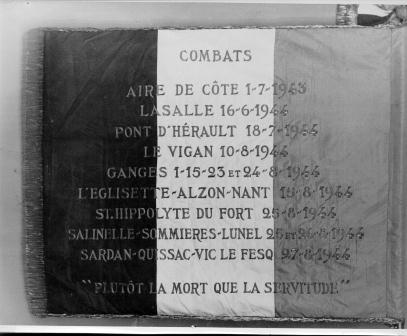 COMBATS
AIRE DE CÔTE 1-7-1943
LASALLE 16-6-1944
PONT D'HÉRAULT 18-7-1944
LE VIGAN 10-8-1944
GANGES 1-15-23 ET 24-8-1944
L'EGLISETTE-ALZON-NANT 15-8-1944
ST.HIPPOLYTE DU FORT 25-8-1944
SALINELLE-SOMMIERES-LUNEL 25 ET 26-8-1944
SARDAN-QUISSAC-VIC LE FESQ 27-8-1944
"PLUTÔT LA MORT QUE LA SERVITUDE"